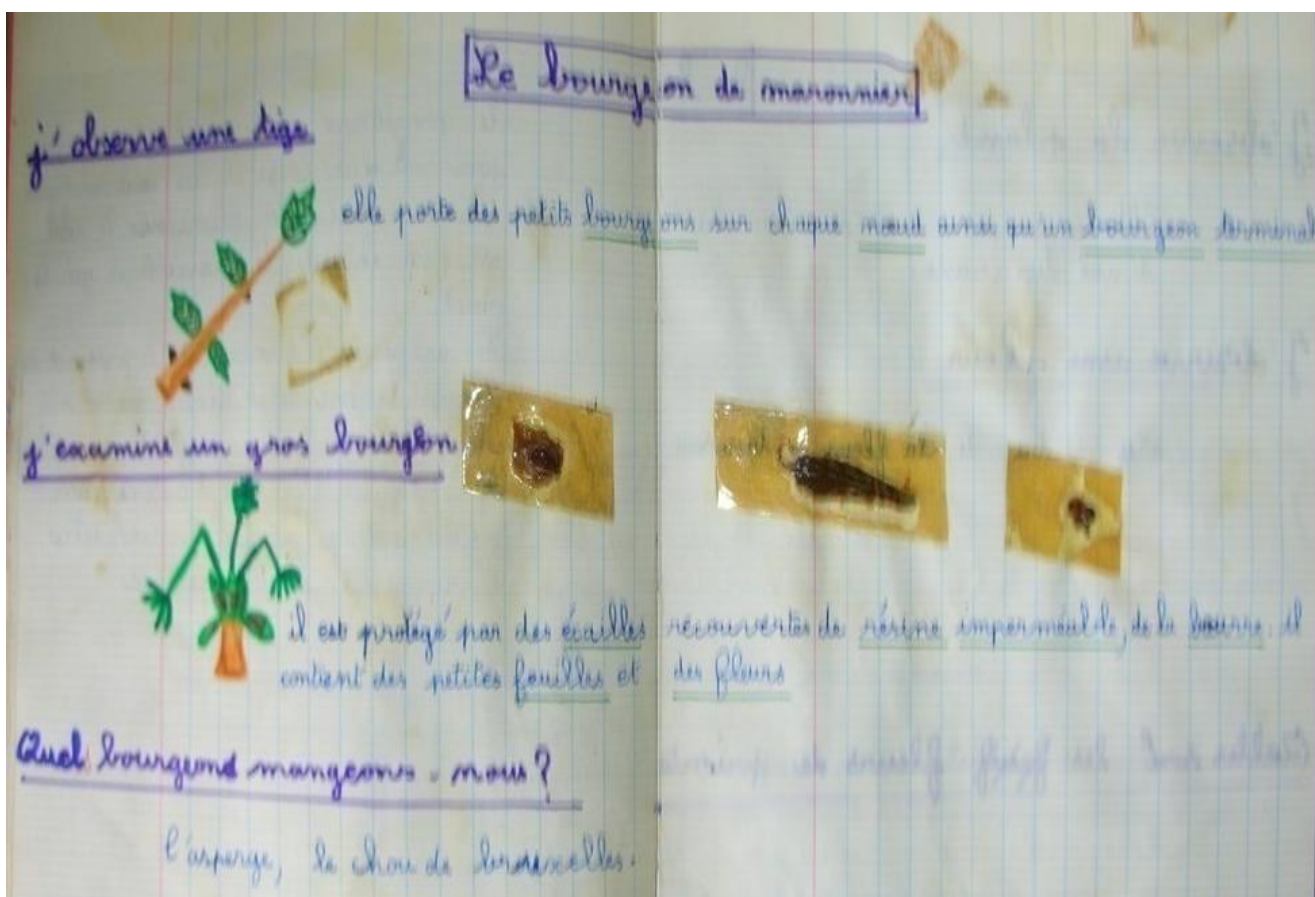 Le bourgeon de maronnier
j'observe une tige
elle porte des petits bourgeons sur chaque nœud ainsi qu'un bourgeon terminal
j'examine un gros bourgeon
il est protégé par des écailles recouvertes de résine imperméable, de la bourre. il
contient des petites feuilles et des fleurs
Quel bourgeons mangeons-nous?
l'asperge, le chou de bruxelles.